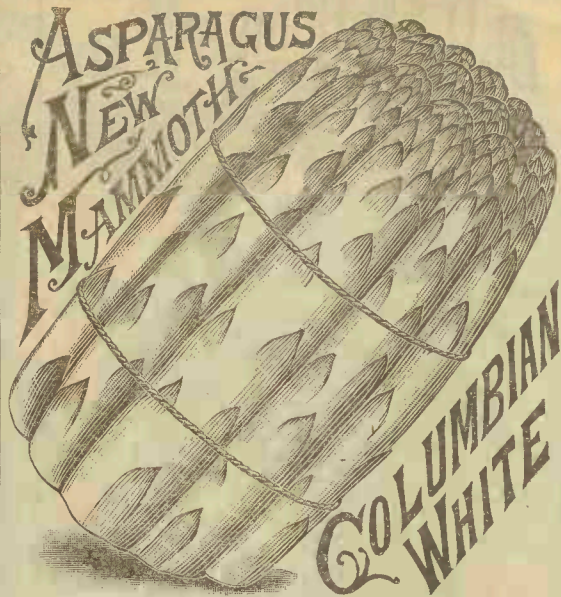 ASPARAGUS
NEW
MAMMOTH
COLUMBIAN
WHITE